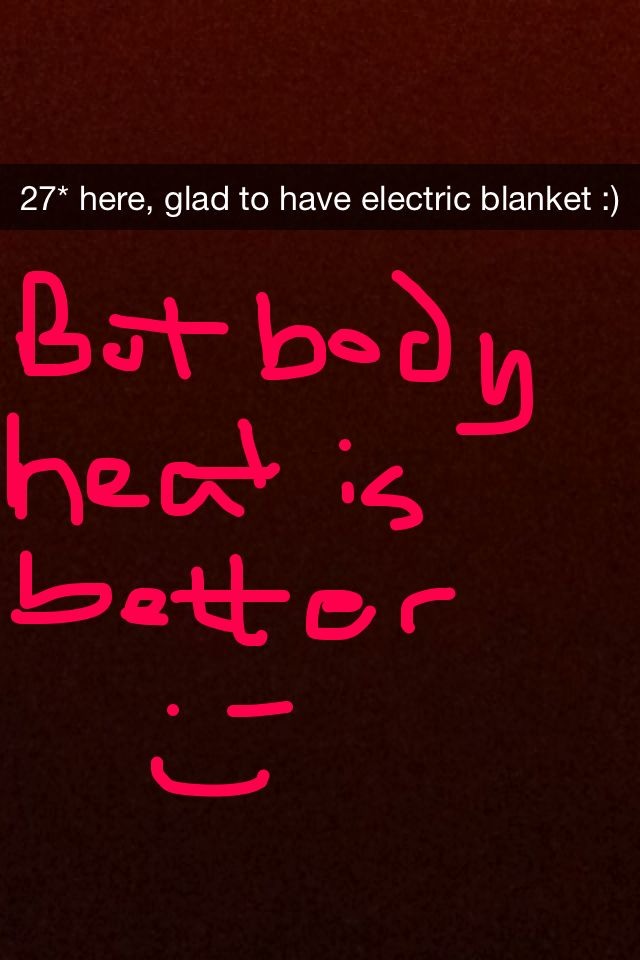 27* here, glad to have electric blanket :)
But body
heat is
better